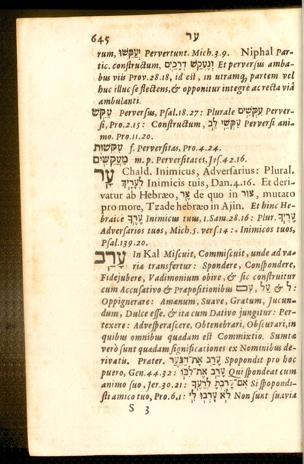 645 ער
rum, יְעַקֵּשׁוּ Pervertunt. Mich. 3.9. Niphal Par-
tic. constructum, וְנֶעְקַשׁ דְּרָכַיִם Et perversus amba-
bus viis Prov. 28.18, id est, in utramq, partem vel
huc illuc se flectens, & opponitur integrè ac recta via
ambulanti.
עִקֵּשׁ Perversus, Psal. 18.27: Plurale עִקְּשִׁים Perver-
si, Pro. 2.15: Constructum, עִקְּשֵׁי לֵב Perversi ani-
mo. Pro. 11.20.
עִקְּשׁוּת f. Perversitas, Pro. 4.24.
מַעֲקַשִּׁים m. p. Perversitates, Jes. 42.16.
עָר Chald. Inimicus, Adversarius: Plural.
לְעָרָיךְ Inimicis tuis, Dan. 4.16. Et deri-
vatur ab Hebræo, צַר de quo in צור, mutato
pro more, Tzade hebræo in Ajin. Et hinc He-
braicè עָרֶךָ Inimicus tuus, 1. Sam. 28.16: Plur. עָרֶיךָ
Adversarios tuos, Mich. 5. vers. 14: Inimicos tuos,
Psal. 139.20.
עָרַב In Kal Miscuit, Commiscuit, unde ad va-
ria transfertur: Spondere, Conspondere,
Fidejubere, Vadimonium obire, & sic construitur
cum Accusativo & Præpositionibus עַל, עִם & לְ:
Oppignerare: Amœnum, Suave, Gratum, Jucun-
dum, Dulce esse, & ita cum Dativo jungitur: Per-
texere: Advesperascere, Obtenebrari, Obscurari, in
quibus omnibus quædam est Commixtio. Sumtæ
verò sunt quædam significationes ex Nominibus de-
rivatis. Præter. עָרַב אֶת־הַנַּעַר Spopondit pro hoc
puero, Gen. 44.32: עָרַב אֶת־לִבּוֹ Qui spondeat cum
animo suo, Jer. 30.21: אִם־עָרַבְתָּ לְרֵעֶךָ Si spopondi-
sti amico tuo, Pro. 6.1: לֹא עָרְבוּ לִי Non sunt suavia
S 3